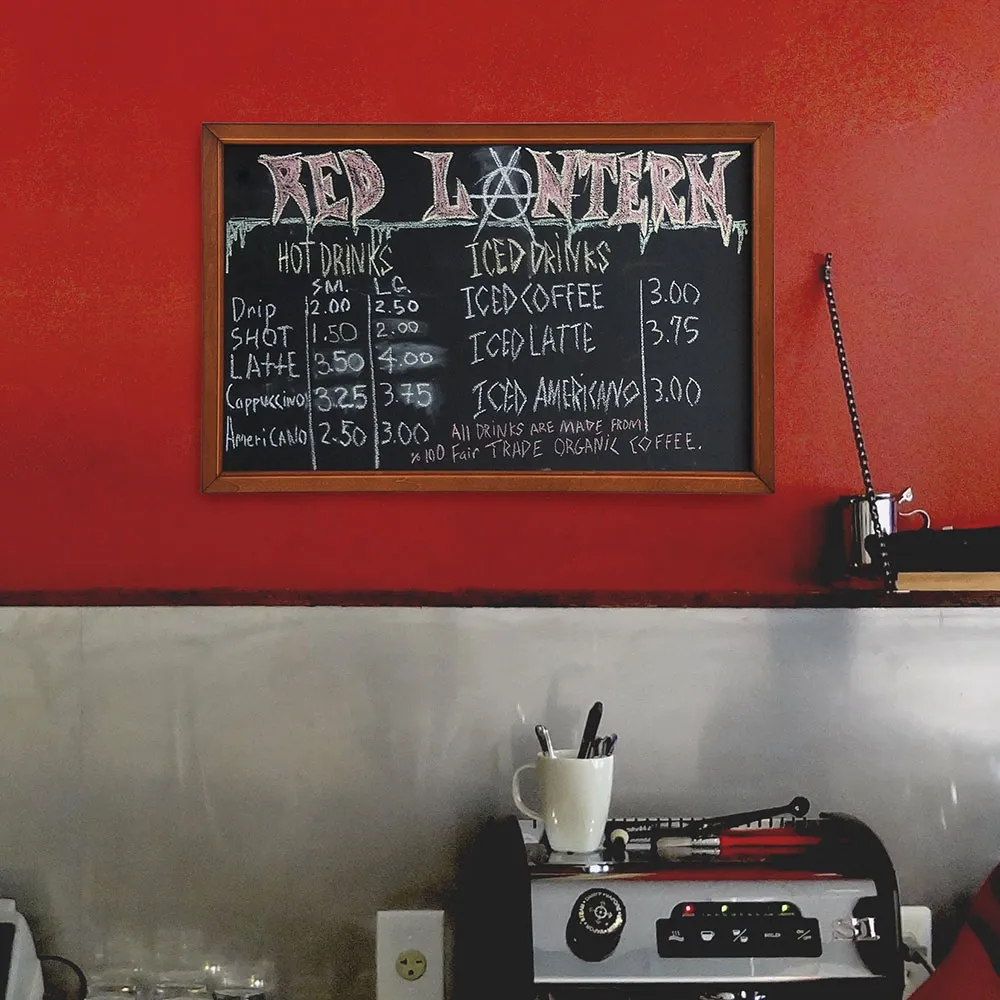 RED LANTERN
HOT DRINKS
SM. LG.
Drip 2.00 2.50
SHOT 1.50 2.00
LATTE 3.50 4.00
Cappuccino 3.25 3.75
AmeriCANO 2.50 3.00
ICED DRINKS
ICED COFFEE 3.00
ICED LATTE 3.75
ICED AMERICANO 3.00
All DRINKS ARE MADE FROM
% 100 Fair TRADE ORGANIC COFFEE.
BOILER
ON/OFF
S1